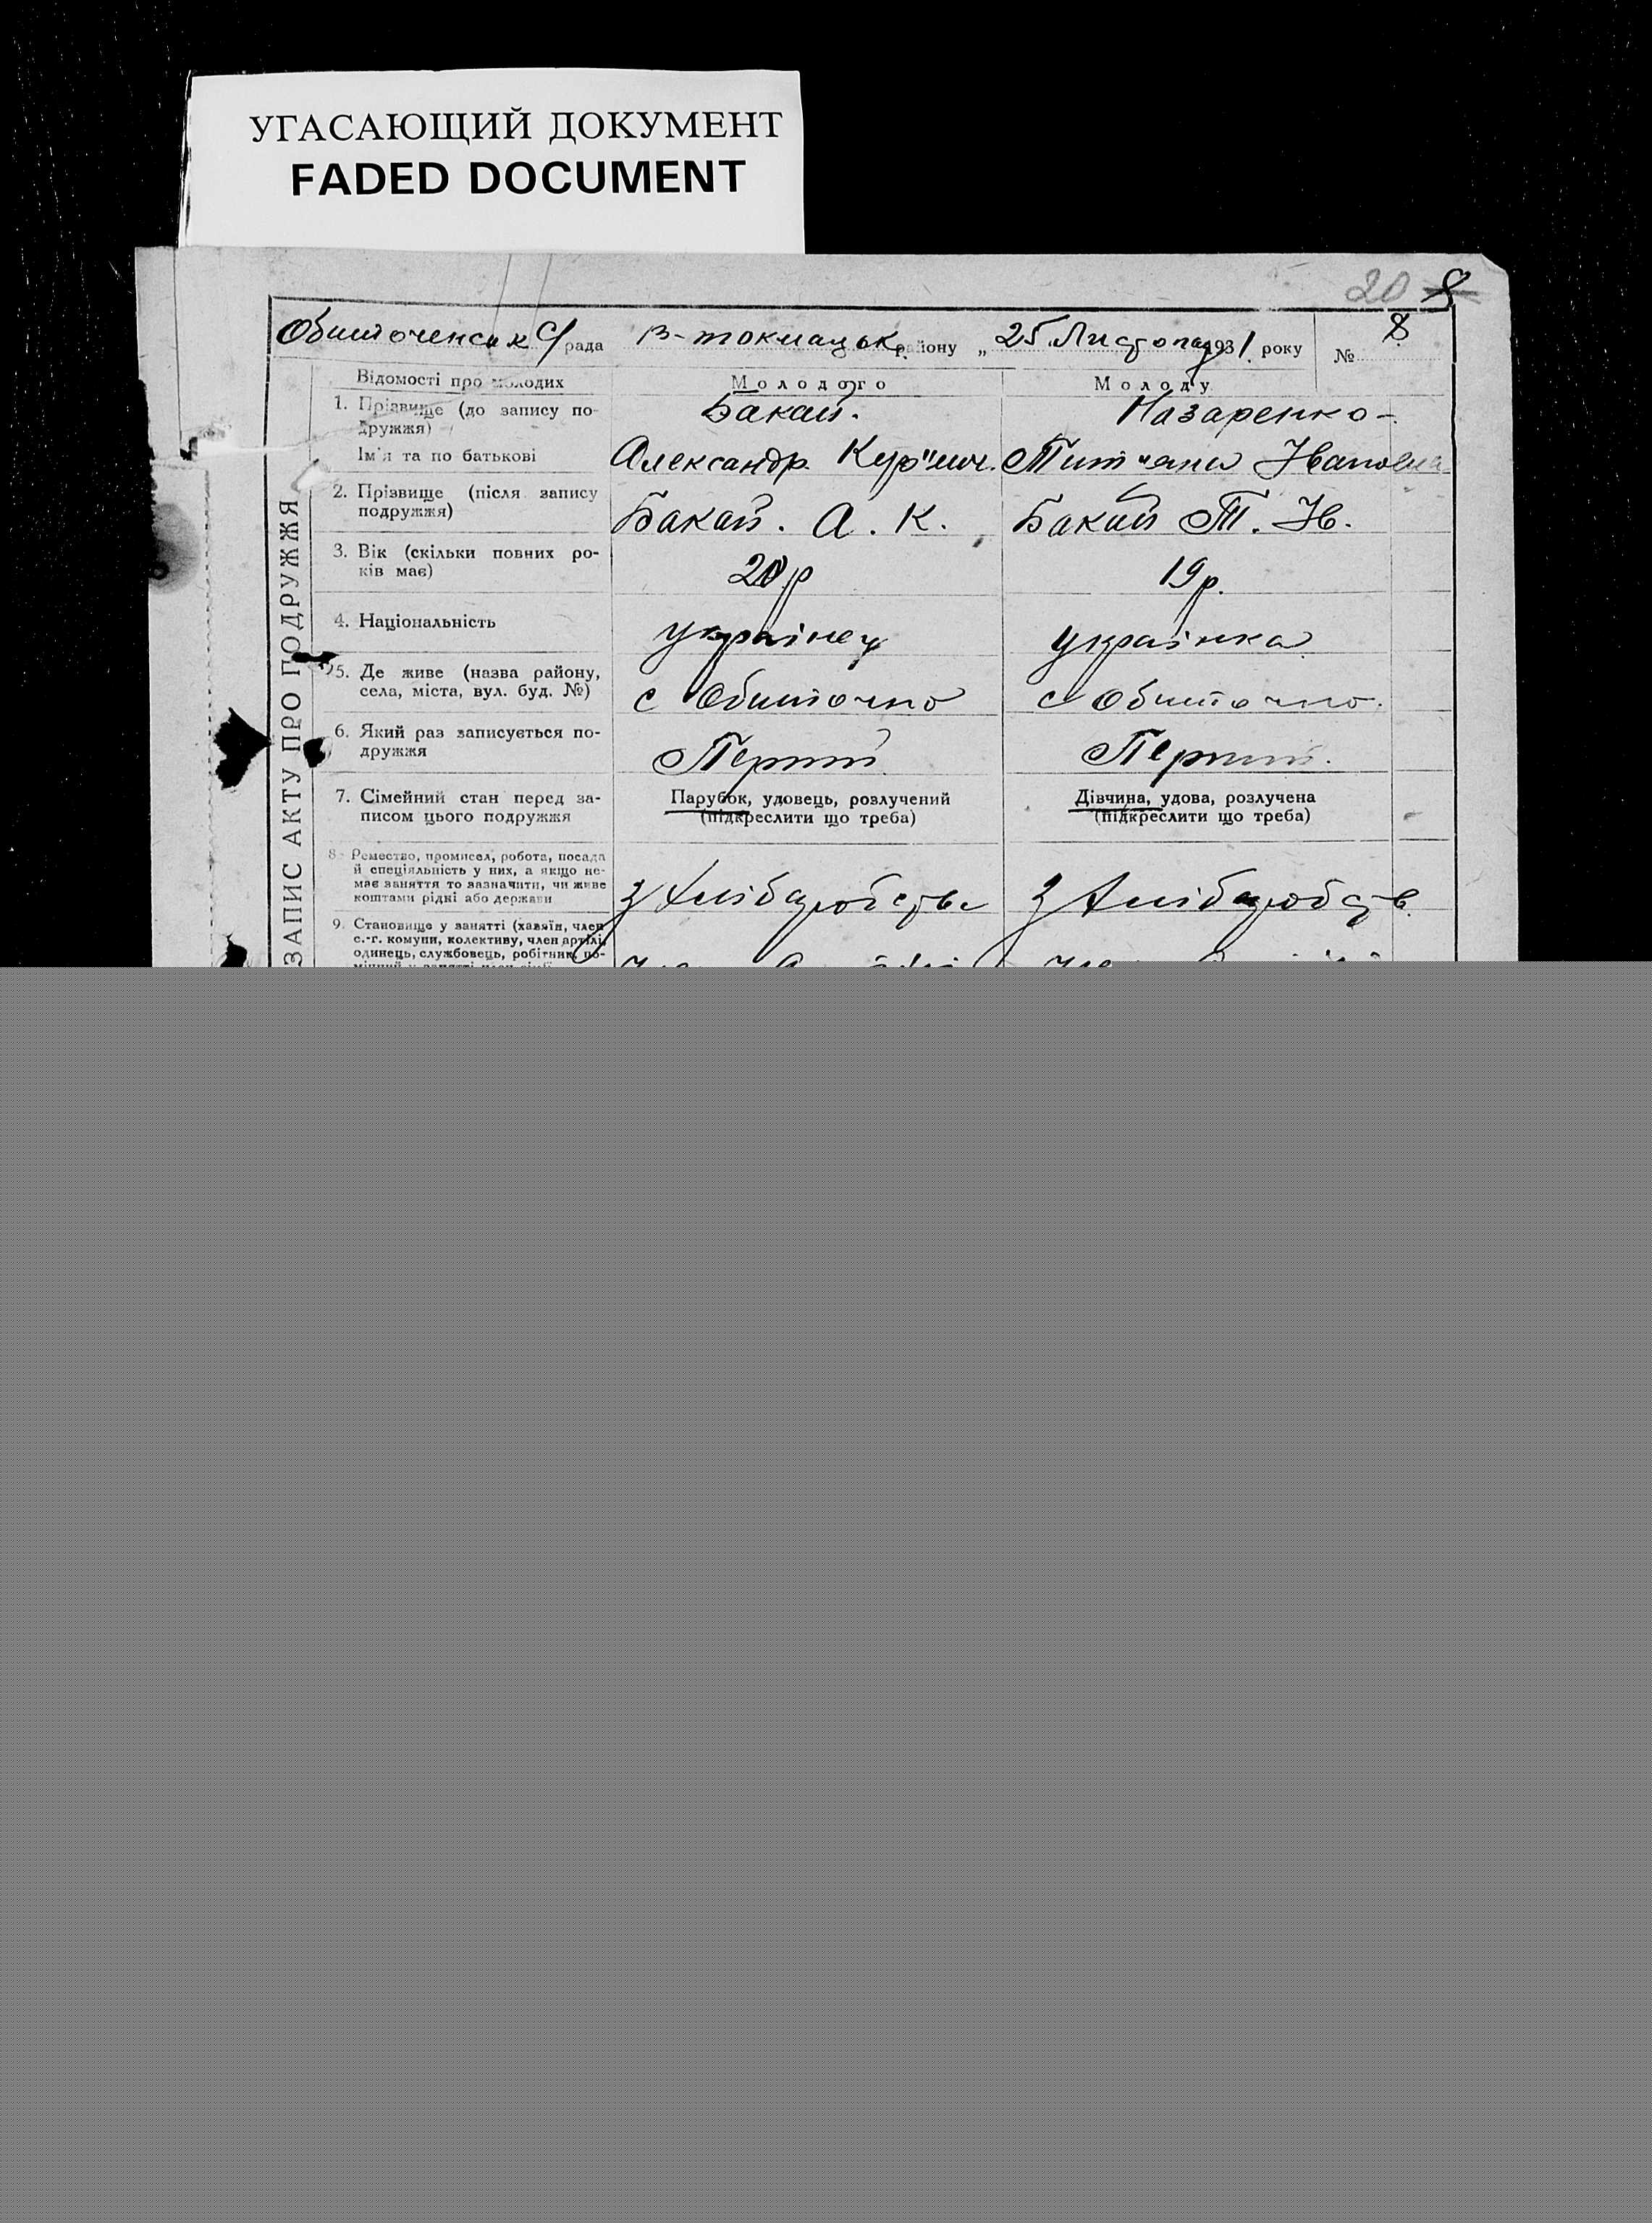 УГАСАЮЩИЙ ДОКУМЕНТ
FADED DOCUMENT
20 8
Обиточенська С/рада В-токмацьк. району „25 Листопад 1931. року № 8
ЗАПИС АКТУ ПРО ПОДРУЖЖЯ
Відомості про молодих Молодого Молоду
1. Прізвище (до запису по- Бакай. Назаренко-
дружжя)
Ім'я та по батькові Александр Тит"яна Івановна
2. Прізвище (після запису
подружжя) Бакай. А. К. Бакай Т. Ів.
3. Вік (скільки повних ро-
ків має) 20р 19р.
4. Національність українец українка
5. Де живе (назва району,
села, міста, вул. буд. №) с Обиточно с Обиточно.
6. Який раз записується по-
дружжя Перший Перший.
7. Сімейний стан перед за- Парубок, удовець, розлучений Дівчина, удова, розлучена
писом цього подружжя (підкреслити що треба) (підкреслити що треба)
8. Ремество, промисел, робота, посада
й спеціяльність у них, а якщо не-
має заняття то зазначити, чи живе
коштами рідні або держави З Хлібаробств З Хлібаробств
9. Становище у занятті (хазяїн, член
с.-г. комуни, колективу, член артілі,
одинець, службовець, робітник, по-